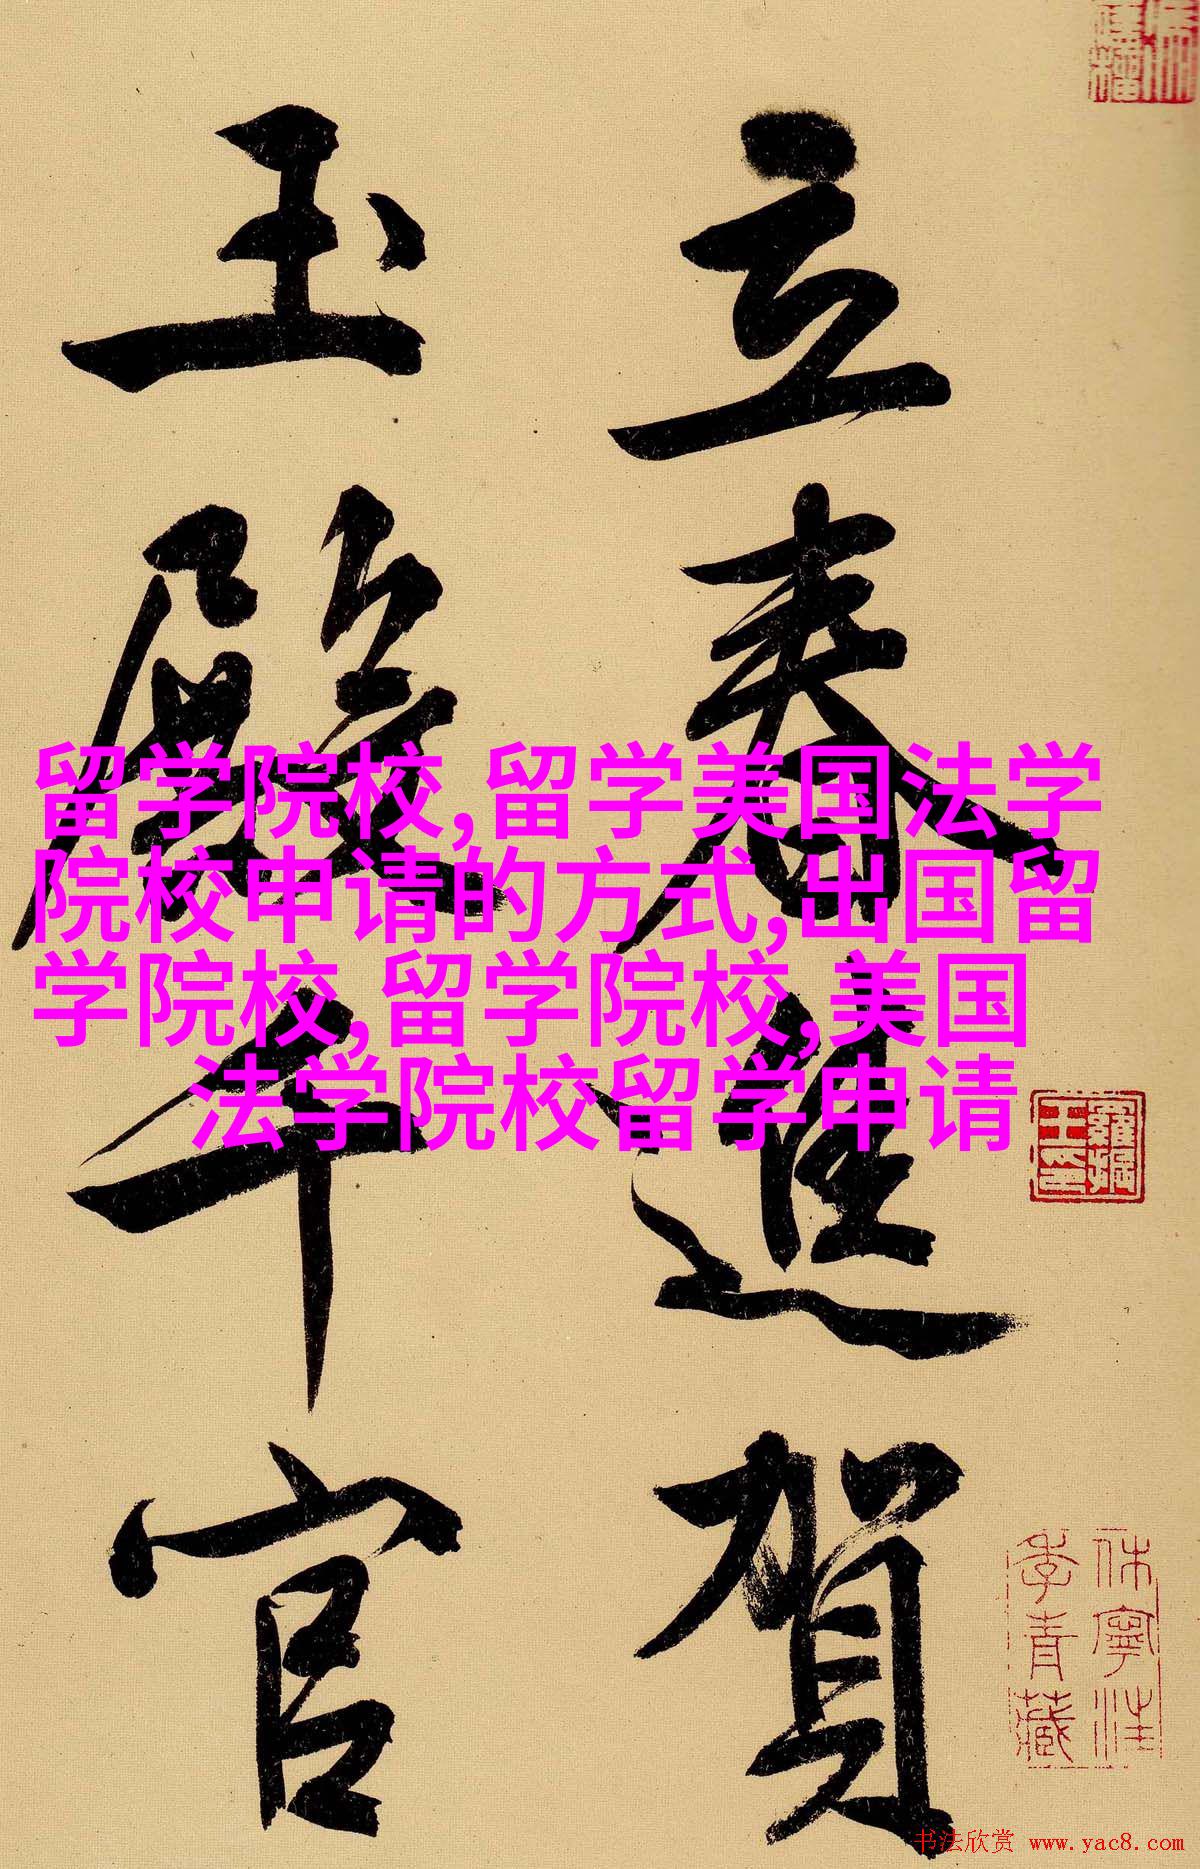 立春進賀
玉殿千官
留学院校,留学美国法学
院校申请的方式,出国留
学院校,留学院校,美国
法学院校留学申请
書法欣赏 www.yac8.com